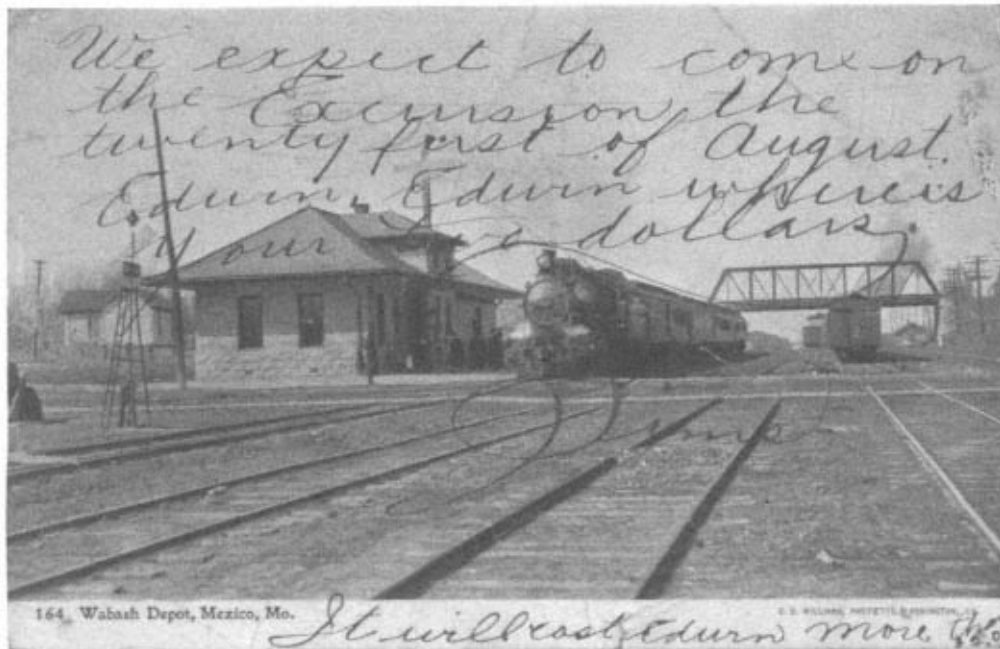 We expect to come on
the Excursion the
twenty first of August.
Edwin, Edwin where is
your two dollars,
164 Wabash Depot, Mexico, Mo.
It will cost Edwin more